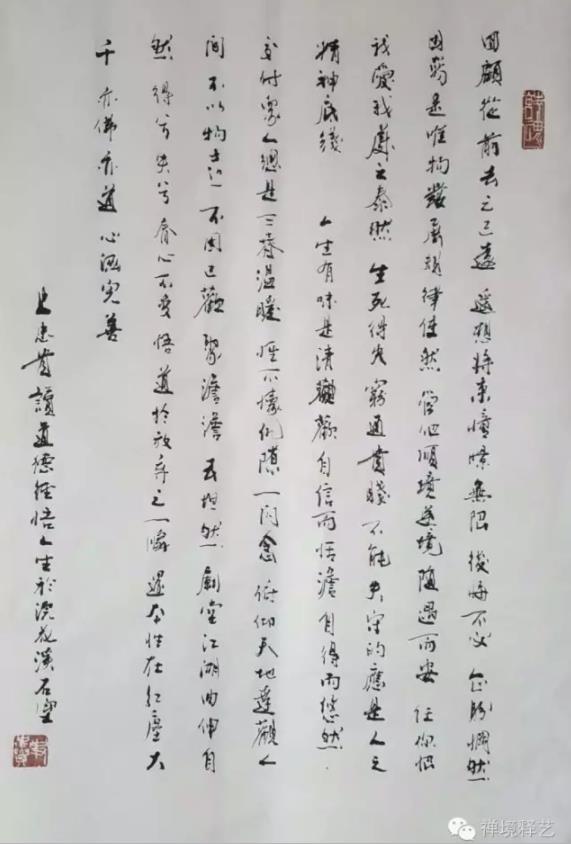 回顧從前去之已遠 遙想將來憧憬無限 後悔不必 企盼惘然
困窮是唯物發展規律使然 管他順境逆境隨遇而安 任你恨
我愛我處之泰然 生死得失窮通貴賤不能失守的應是人之
精神底綫 人生有味是清歡 自信而恬澹 自得而悠然
交付眾人總是三春溫暖 惟不懷仇隙一閃念 俯仰天地達觀人
間 不以物喜 不因己歡 聚澹澹 去坦然 廟堂江湖曲伸自
然 得兮失兮 齊心不變 悟道於放棄之一瞬 還本性在紅塵大
千 亦佛亦道 心涵完善
史忠貴讀道德經悟人生於浣花溪石室
禅境释艺